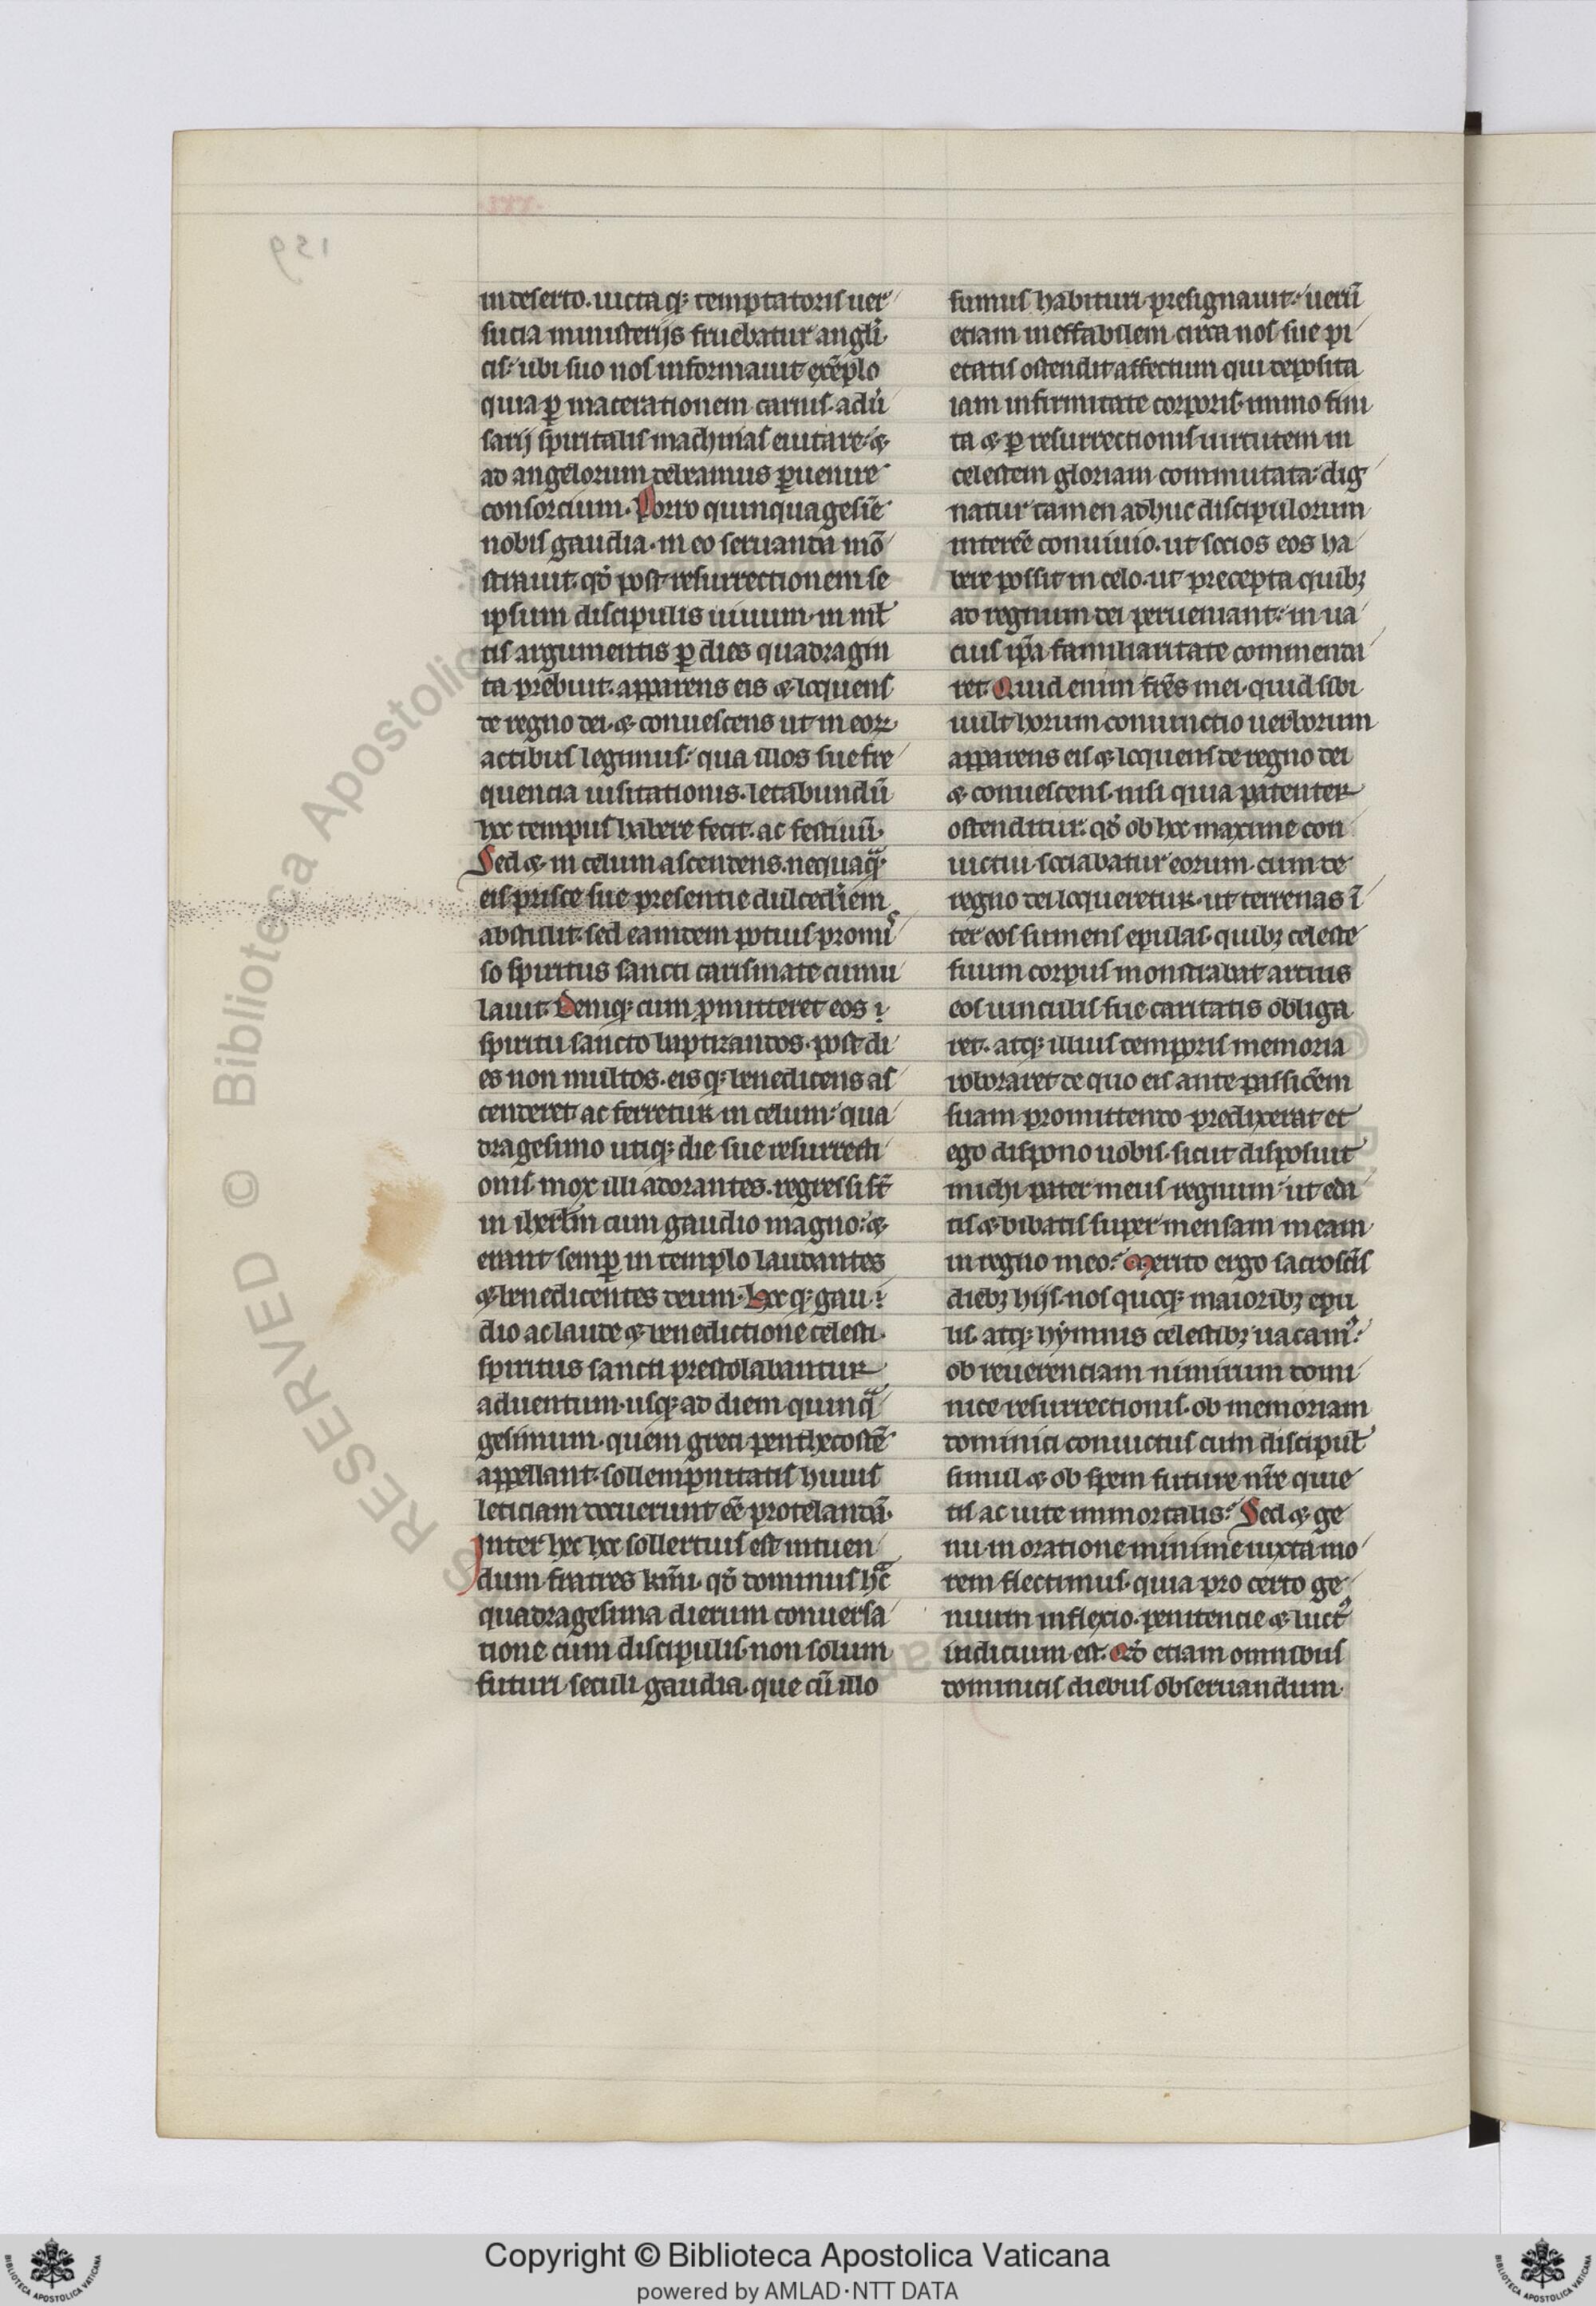 in deserto. uictaq; temptatoris uer
sucia ministerijs fruebatur angli
cis: ubi suo nos informauit exẽplo
quia ꝑ macerationem carnis. adũ
sarij spiritalis machinas euitare: ⁊
ad angelorum debeamus ꝑuenire
consorcium. Porro quinquagesiẽ
nobis gaudia. in eo seruanda mõ
strauit. qđ post resurrectionem se
ipsum discipulis uiuum. in mƚ
tis argumentis ꝑ dies quadragin
ta prebuit. apparens eis ⁊ loquens
de regno dei. ⁊ conuescens ut in eoꝝ
actibus legimus: qua illos sue fre
quencia uisitationis. letabundũ
hoc tempus habere fecit. ac festiuũ.
Sed ⁊ in celum ascendens. nequaq̃
eis prisce sue presentie dulcediem
abstulit. sed eamdem potius promis
so spiritus sancti carismate cumu
lauit. Deniq; cum ꝓmitteret eos ı
spiritu sancto baptizandos. post di
es non multos. eisq; benedicens as
cenderet ac ferretur in celum: qua
dragesimo utiq; die sue resurrecti
onis. mox illi adorantes. regressi st̃
in iherlm cum gaudio magno: ⁊
erant semꝑ in templo laudantes
⁊ benedicentes deum. Hocq; gau
dio ac laude ⁊ benedictione celesti.
spiritus sancti prestolabantur
aduentum. usq; ad diem quinq̃
gesimum. quem greci penthecostẽ
appellant. sollempnitatis huius
leticiam docuerunt eẽ protelandã.
Inter hec hoc sollertius est intuen
dum fratres kmi. qđ dominus hac
quadragesima dierum conuersa
tione cum discipulis. non solum
futuri seculi gaudia. que cũ illo
sumus habituri presignauit: uerũ
etiam ineffabilem circa nos sue pi
etatis ostendit affectum qui deposita
iam infirmitate corporis. immo fini
ta ⁊ ꝑ resurrectionis uirtutem in
celestem gloriam commutata: dig
natur tamen adhuc discipulorum
intereẽ conuiuio. ut socios eos ha
bere possit in celo. ut precepta quibꝫ
ad regnum dei perueniant: in ua
cuis ip̃a familiaritate commenda
ret. Quid enim frẽs mei. quid sibi
uult horum coniunctio uerborum
apparens eis ⁊ loquens de regno dei
⁊ conuescens. nisi quia patenter
ostenditur. qđ ob hoc maxime con
uictui sociabatur eorum. cum de
regno dei loqueretur. ut terrenas ĩ
ter eos sumens epulas. quibꝫ celeste
suum corpus monstrabat artius
eos uinculis sue caritatis obliga
ret. atq; illius temporis memoria
roboraret de quo eis ante passiõem
suam promittendo predixerat et
ego dispono uobis. sicut disposuit
michi pater meus regnum. ut eda
tis ⁊ bibatis super mensam meam
in regno meo: Merito ergo sacroscĩs
diebꝫ hijs. nos quoq; maioribꝫ epu
lis. atq; hymnis celestibꝫ uacamꝰ:
ob reuerenciam nimirum domi
nice resurrectionis. ob memoriam
dominici conuictus cum discipuƚ
simul ⁊ ob spem future nr̃e quie
tis ac uite immortalis: Sed ⁊ ge
nu in oratione minime iuxta mo
rem flectimus. quia pro certo ge
nuum inflexio. penitencie ⁊ luctꝰ
indicium est. Qđ etiam omnibus
dominicis diebus obseruandum.
Copyright © Biblioteca Apostolica Vaticana
powered by AMLAD·NTT DATA